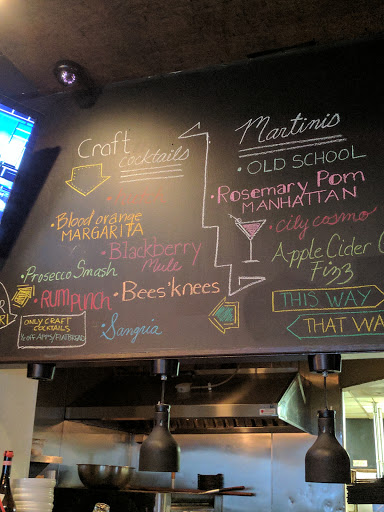 Craft
Cocktails
Blood orange
MARGARITA
Blackberry
Mule
Prosecco Smash
RUM Punch
Bees' knees
Sangria
ONLY CRAFT
COCKTAILS
½ off APPS/FLATBREAD
Martinis
OLD SCHOOL
Rosemary Pom
MANHATTAN
city cosmo
Apple Cider
Fizz
THIS WAY
THAT WA